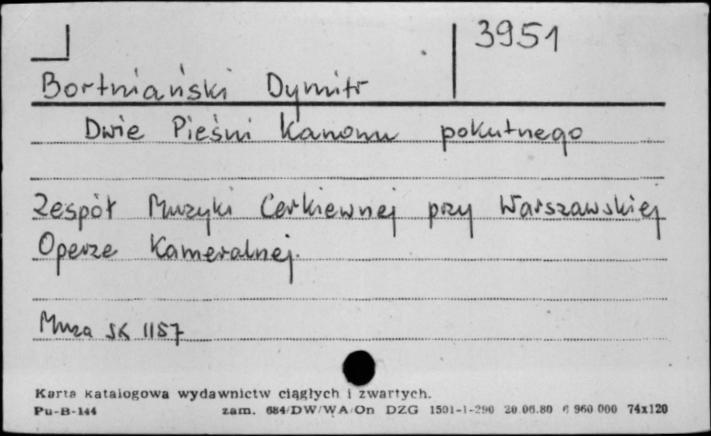 3951
Bortniański Dymitr
Dwie Pieśni Kanonu pokutnego
Zespół Muzyki Cerkiewnej przy Warszawskiej
Operze Kameralnej.
Muza SX 1157
Karta katalogowa wydawnictw ciągłych i zwartych.
Pu-B-144 zam. 684/DW/WA/On DZG 1501-1-290 20.06.80 6 960 000 74x120